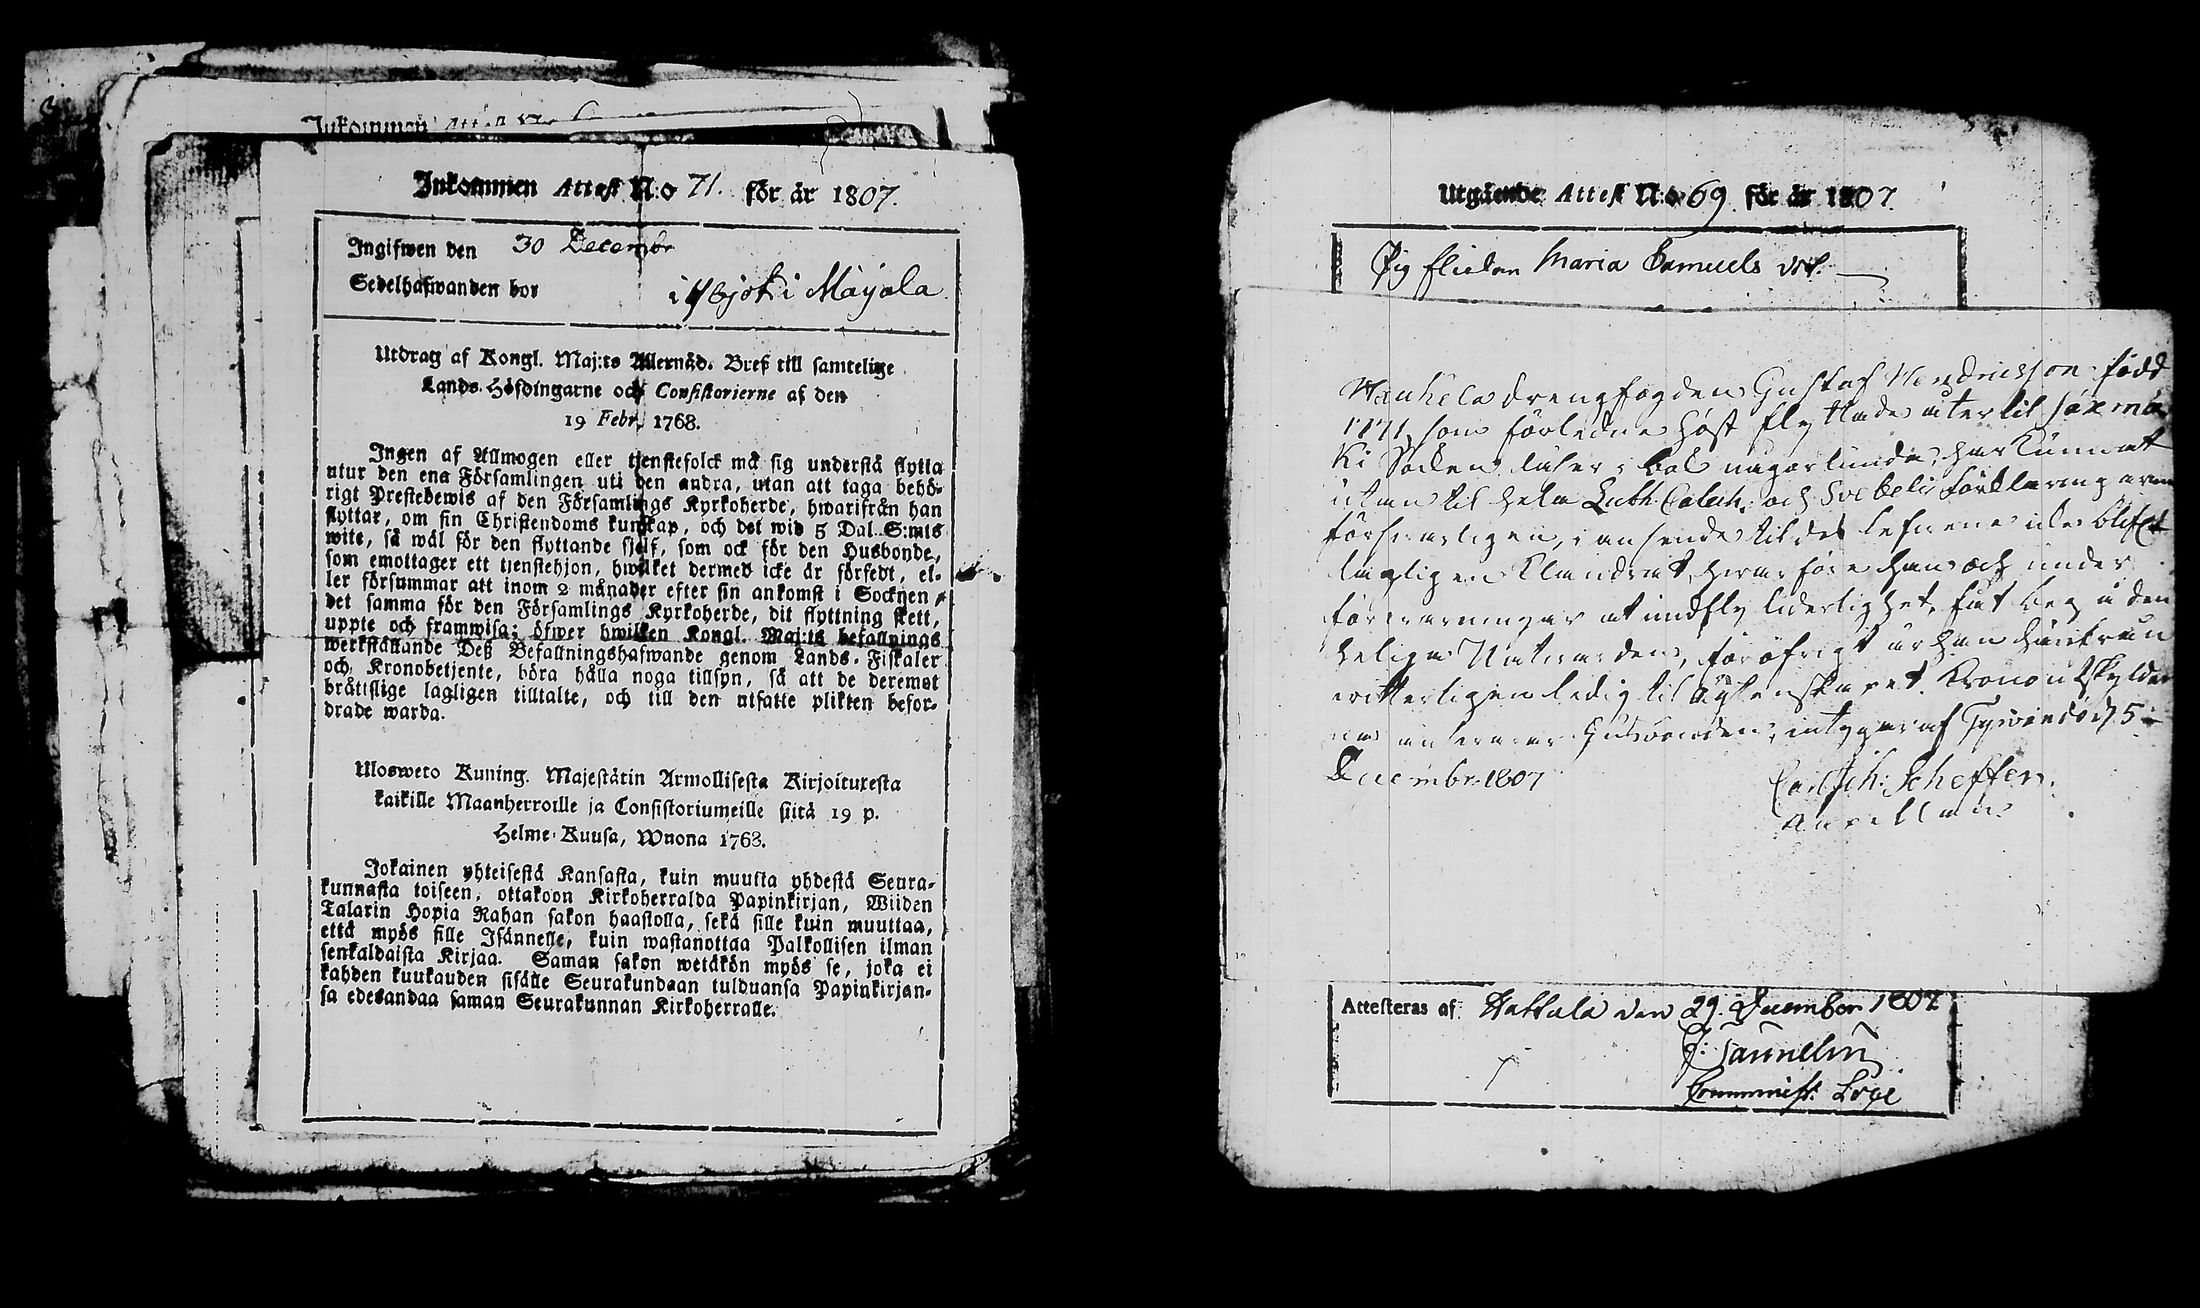 Inkommen Attest N:o 71. för år 1807.
Ingifwen den 30 Decembr
Sedelhafwanden bor i Mäyola
Utdrag af Kongl. Maj:ts Allernåd. Bref till samtelige
Lands-Höfdingarne och Consistorierne af den
19 Febr. 1768.
Ingen af Allmogen eller tjenstefolck må sig understå flytta
utur den ena Församlingen uti den andra, utan att taga behö-
rigt Prestebewis af den Församlings Kyrkoherde, hwarifrån han
flyttar, om sin Christendoms kunskap, och det wid 5 Dal. S:mts
wite, så wäl för den flyttande sjelf, som ock för den Husbonde,
som emottager ett tjenstehjon, hwilket dermed icke är försedt, el-
ler försummar att inom 2 månader efter sin ankomst i Socknen,
det samma för den Församlings Kyrkoherde, dit flyttning skett,
uppte och framwisa; öfwer hwilken Kongl. Maj:ts befallnings
werkställande Deß Befallningshafwande genom Lands-Fiskaler
och Kronobetjente, böra hålla noga tillsyn, så att de deremot
bråttslige lagligen tilltalte, och till den utsatte plikten befor-
drade warda.
Ulosweto Kuning. Majestätin Armollisesta Kirjoituxesta
kaikille Maanherroille ja Consistoriumeille siitä 19 p.
Helme-Kuusa, Wuona 1768.
Jokainen yhteisestä Kansasta, kuin muutta yhdestä Seura-
kunnasta toiseen, ottakoon Kirkoherralda Papinkirjan, Wiiden
Talarin Hopia Rahan sakon haastolla, sekä sille kuin muuttaa,
että myös sille Isännelle, kuin wastanottaa Palkollisen ilman
senkaldaista Kirjaa. Saman sakon wetäkön myös se, joka ei
kahden kuukauden sisälle Seurakundaan tulduansa Papinkirjan-
sa edesandaa saman Seurakunnan Kirkoherralle.
Utgående Attest N:o 69. för år 1807.
Pig flickan Maria Samuels dot.
drengfogden Gustaf Hendricsson, född
1771, som förledne höst flyttade åter til Saxmä
ki Socken, läser i bok någorlunda, har kunnat
utan til hela Luth. Catech. och Svebelii förklaring aren
försvarligen, i anseende til des lefverne icke blifvit
lagligen klandrat, hvarföre han och under
förvarningar at undfly liderlighet, fåt begå den
heliga Nattvarden, för öfrigt är han härifrån
vitterligen ledig til ägtenskapet. Kronoutskylder
na ansvarar Husbonden, intygar af Tyrvändö d. 5
Decembr 1807
Carl Joh: Scheffer.
Capellan.
Attesteras af Hattula den 29. December 1807.
J: Tannelin
Commiss. Loci